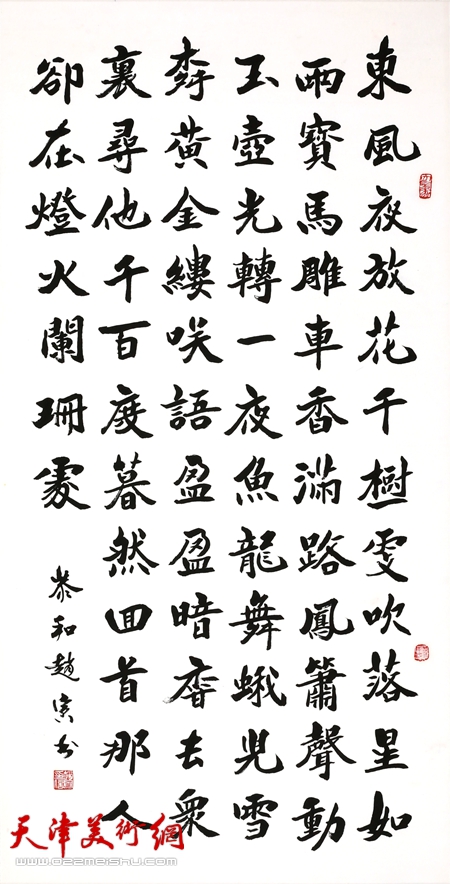 東風夜放花千樹更吹落星如
雨寶馬雕車香滿路鳳簫聲動
玉壺光轉一夜魚龍舞蛾兒雪
柳黃金縷咲語盈盈暗香去衆
裏尋他千百度暮然回首那人
卻在燈火闌珊處
和趙寅书
天津美術網
www.022meishu.com